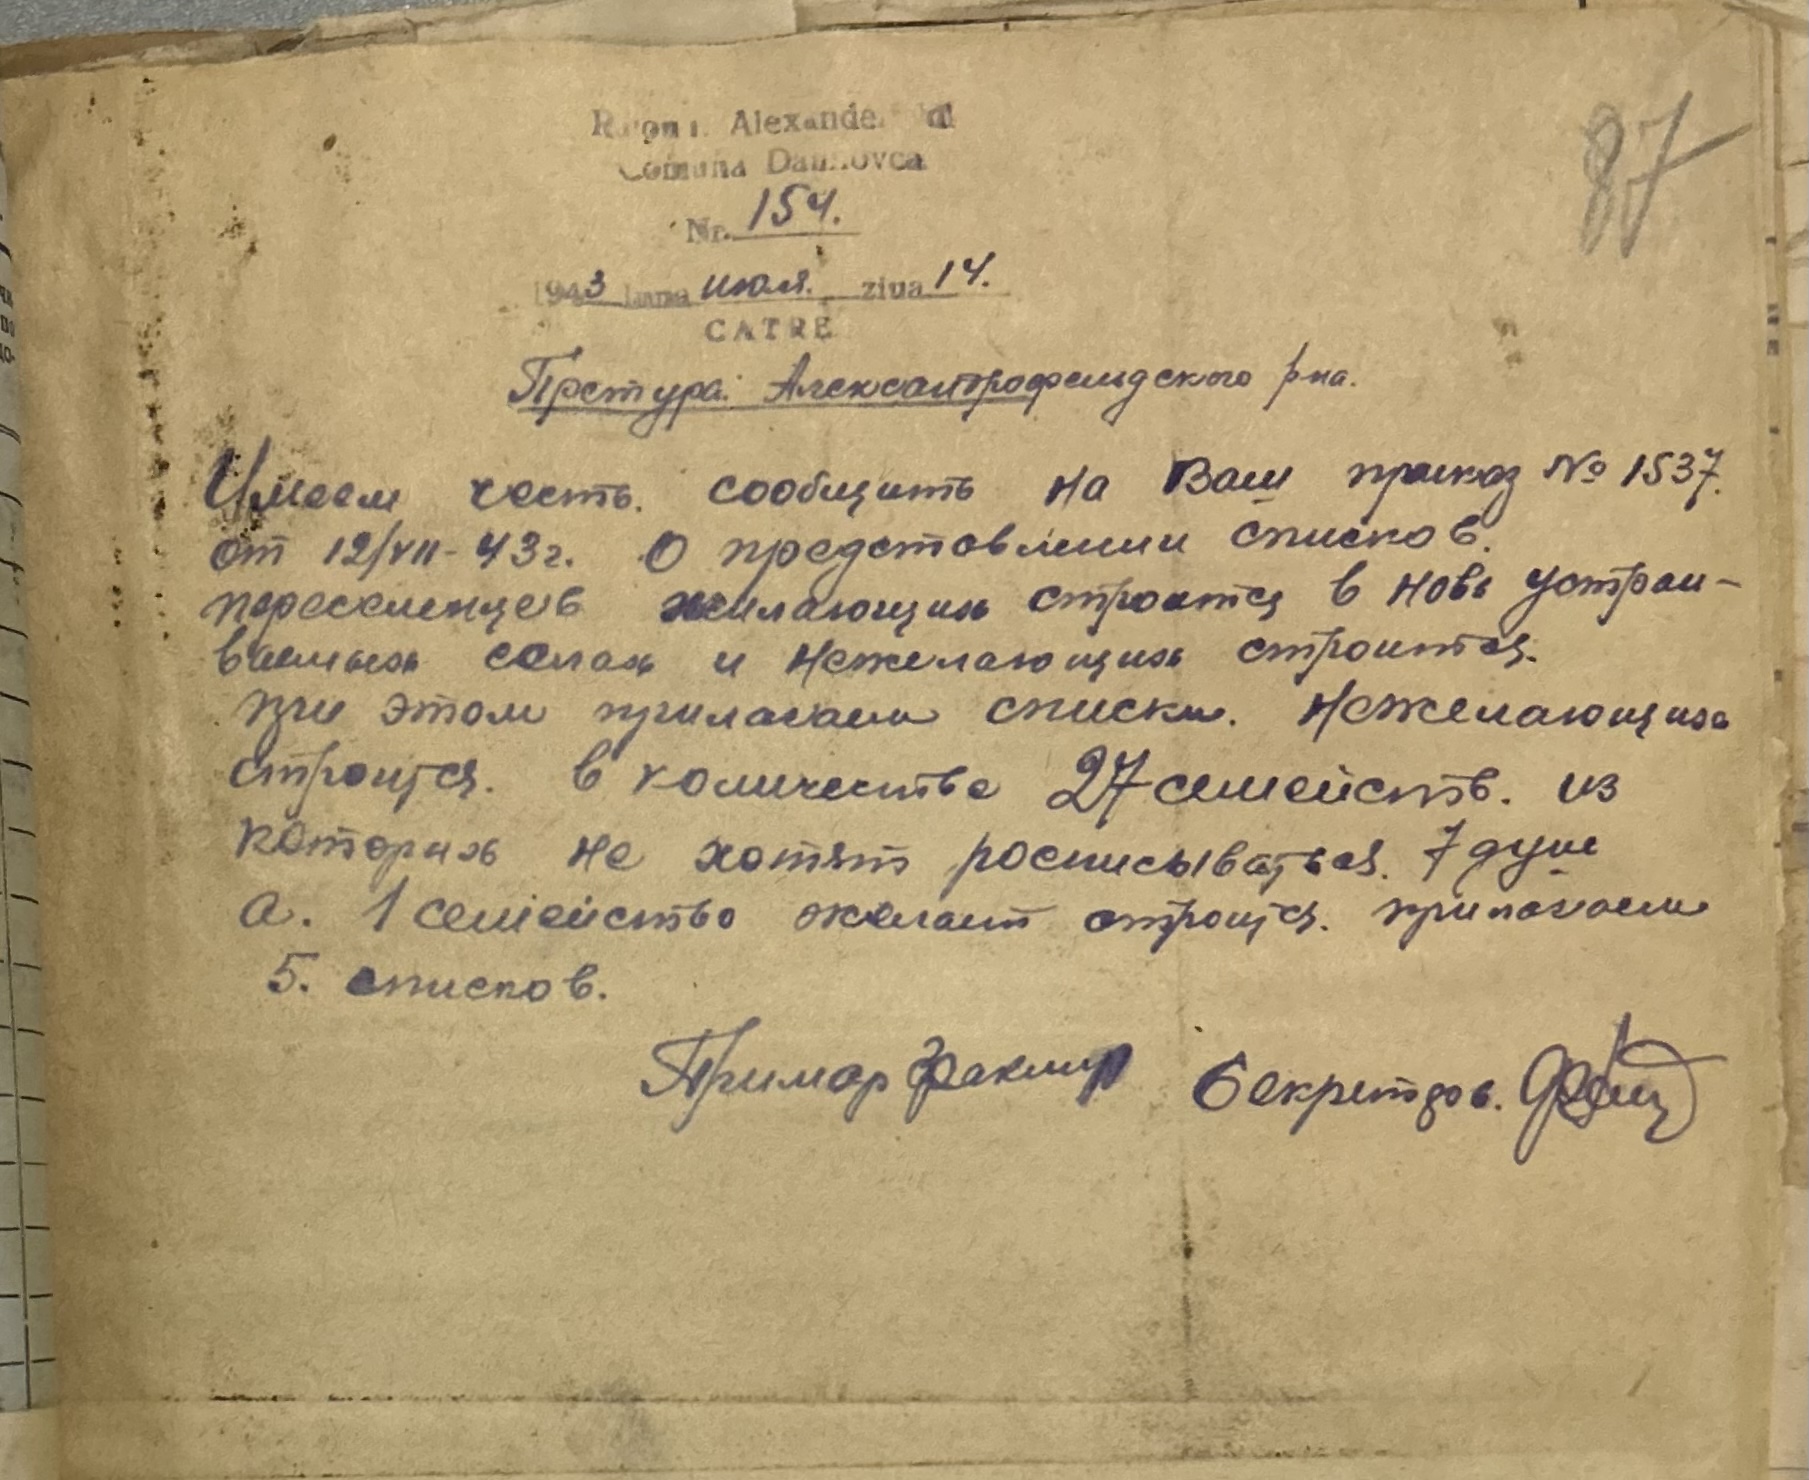 87
Raionul Alexanderfeld
Comuna Danilovca
Nr. 154.
1943 luna июля. ziua 14.
CATRE
Претура: Александрофельдского р-на.
Имеем честь. сообщить на Ваш приказ № 1537.
от 12/VII-43г. О представлении списков.
переселенцев желающих строится в новь устраи-
ваемых селах и нежелающих строится.
при этом прилагаем списки. нежелающих
строится. в количестве 27 семейств. из
которых не хотят росписываться. 7 душ
а. 1 семейство желает строится. прилагаем
5. списков.
Примар Секретарь.